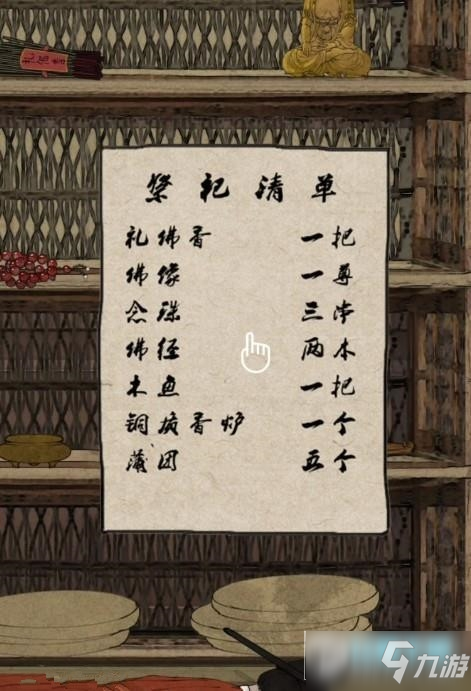 礼佛香
祭祀清单
礼佛香 一把
佛像 一尊
念珠 三串
佛经 两本
木鱼 一把
铜质香炉 一个
蒲团 五个
九游